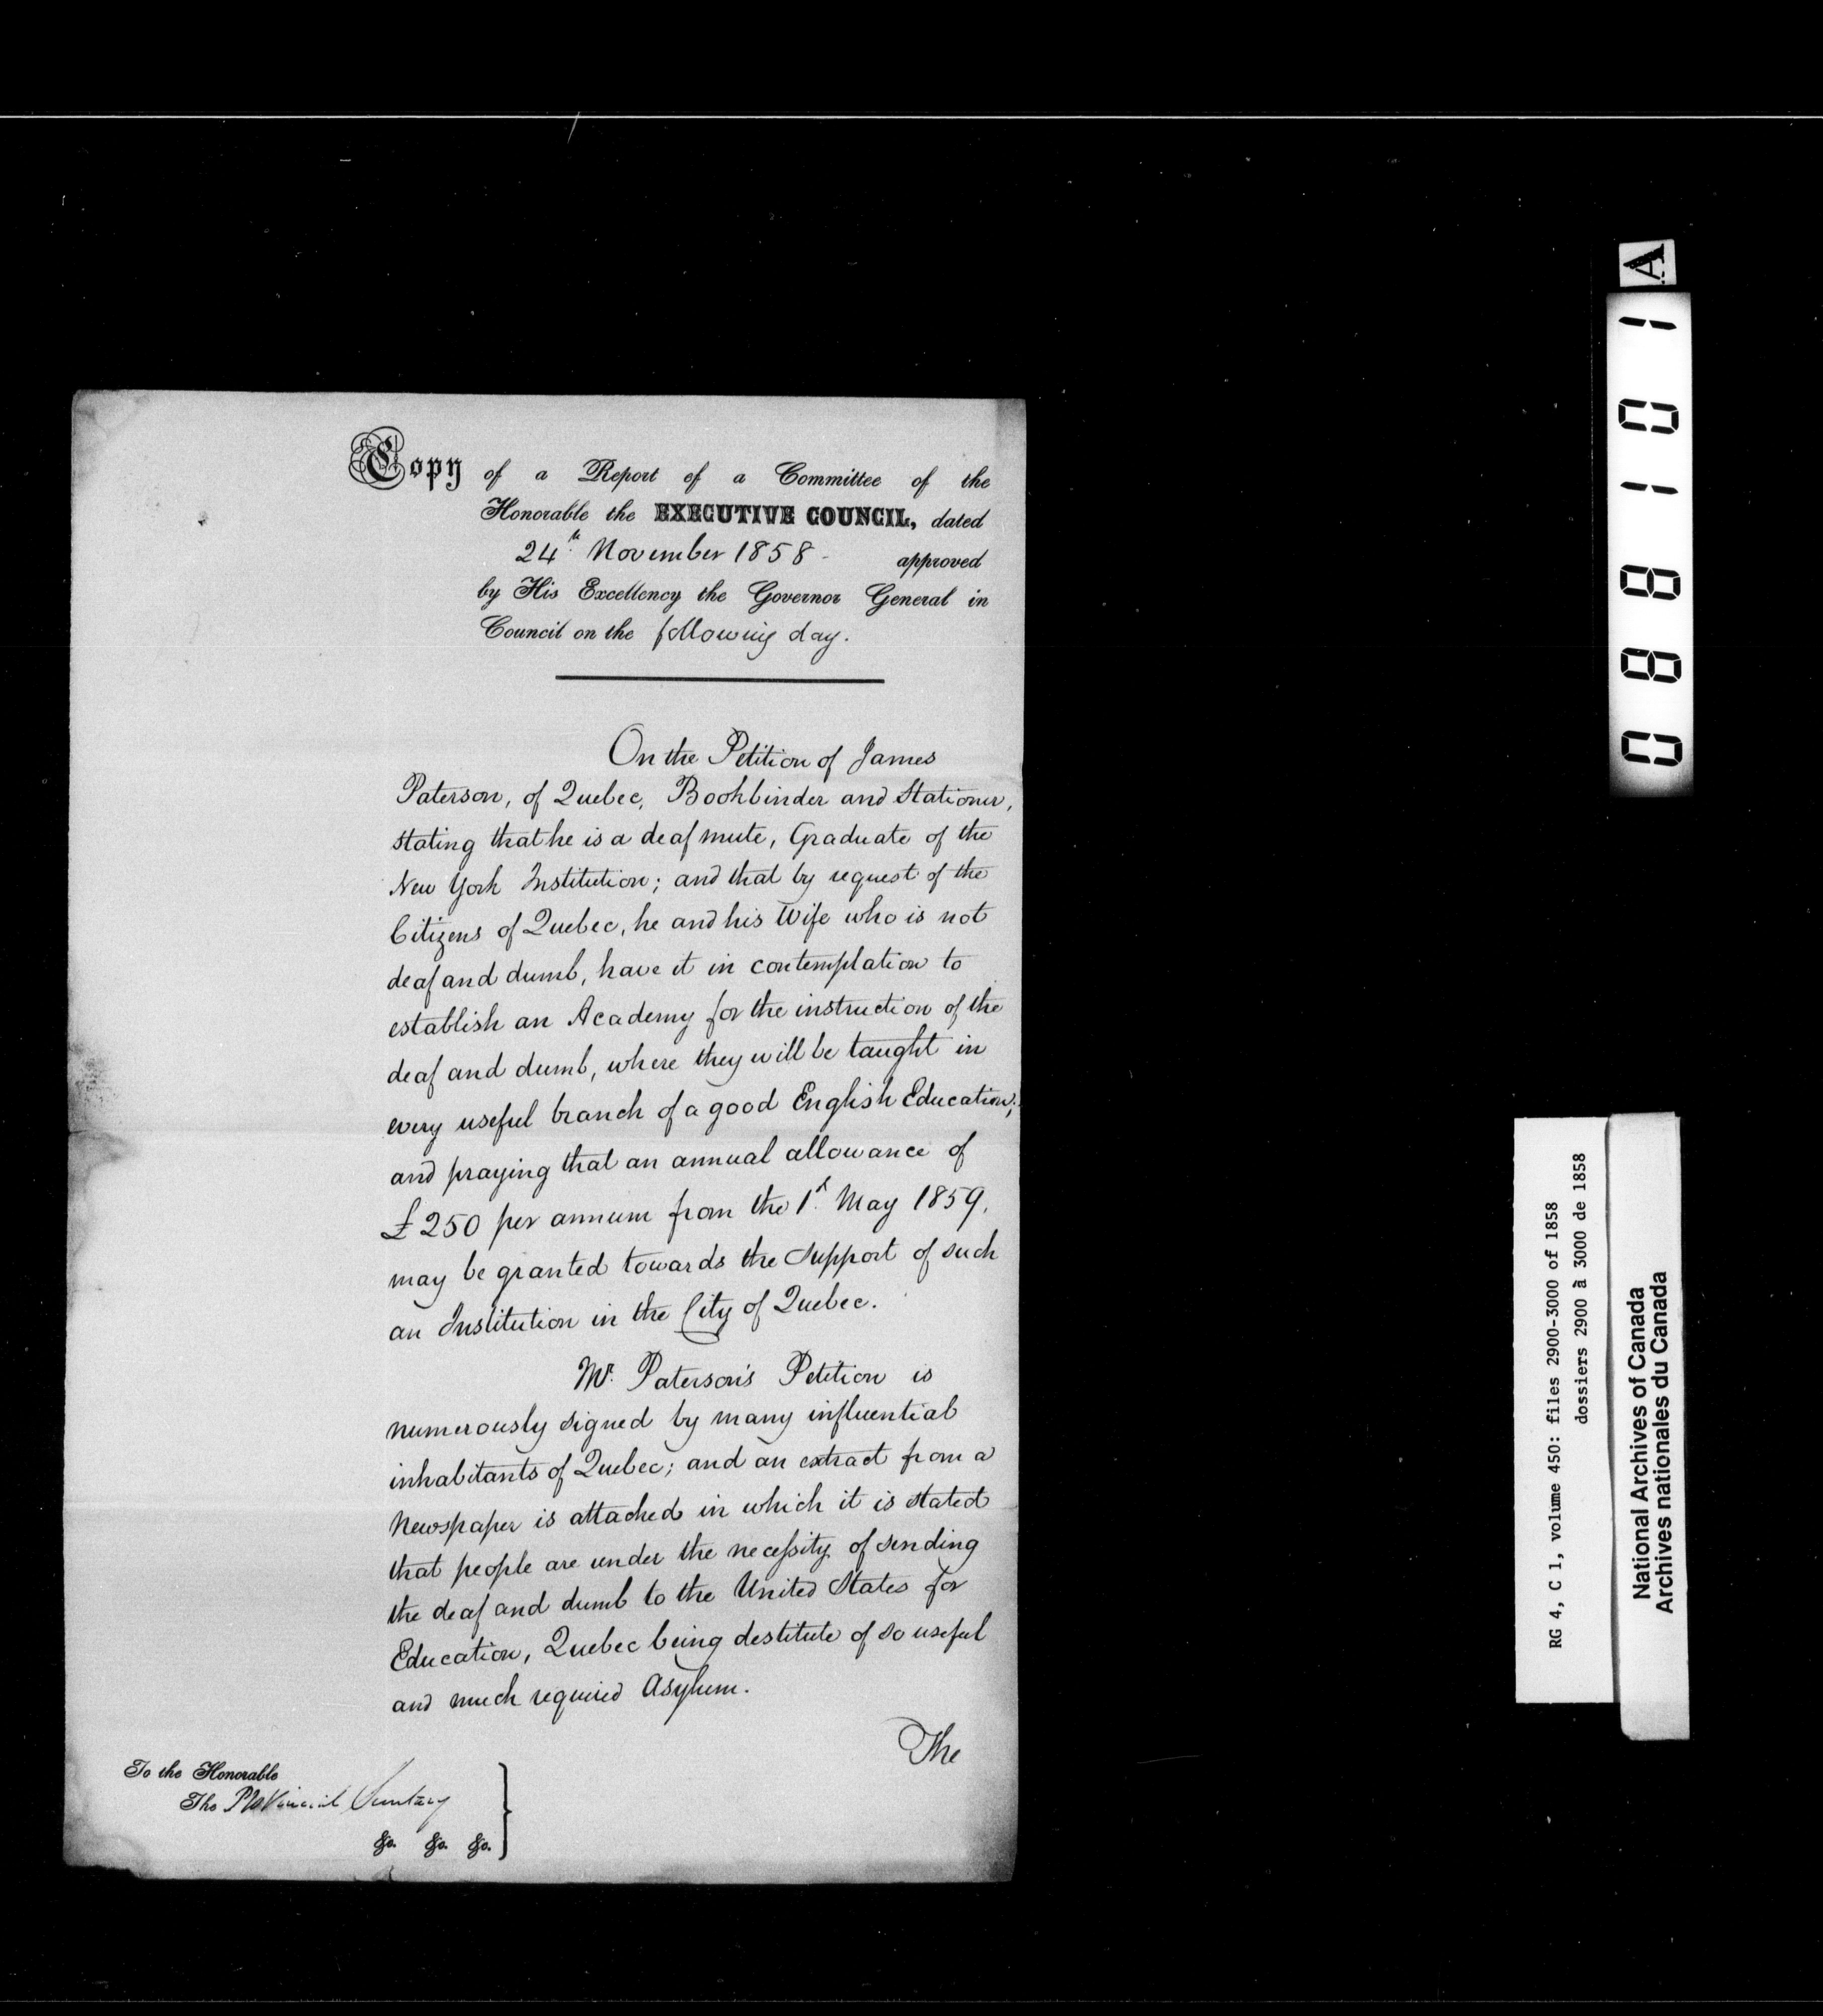 Copy of a Report of a Committee of the
Honorable the EXECUTIVE COUNCIL, dated
24th November 1858 - approved
by His Excellency the Governor General in
Council on the following day.
On the Petition of James
Paterson, of Quebec, Bookbinder and Stationer,
stating that he is a deaf mute, Graduate of the
New York Institution; and that by request of the
Citizens of Quebec, he and his Wife who is not
deaf and dumb, have it in contemplation to
establish an Academy for the instruction of the
deaf and dumb, where they will be taught in
every useful branch of a good English Education;
and praying that an annual allowance of
£250 per annum from the 1st May 1859,
may be granted towards the support of such
an Institution in the City of Quebec.
Mr. Paterson's Petition is
numerously signed by many influential
inhabitants of Quebec; and an extract from a
Newspaper is attached in which it is stated
that people are under the necessity of sending
the deaf and dumb to the United States for
Education, Quebec being destitute of so useful
and much required Asylum.
The
To the Honorable
The Provincial Secretary
&c. &c. &c.
A
088101
RG 4, C 1, volume 450: files 2900-3000 of 1858
dossiers 2900 à 3000 de 1858
National Archives of Canada
Archives nationales du Canada